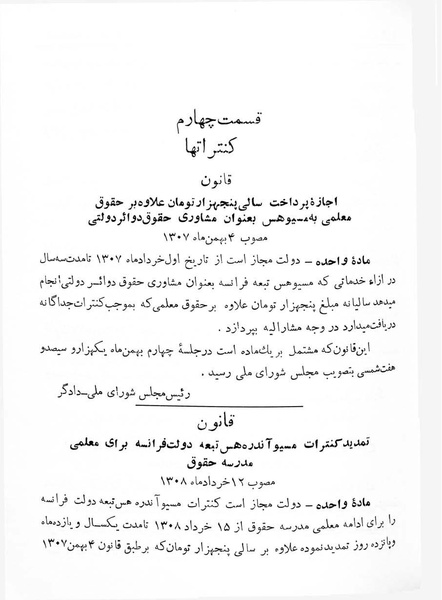 قسمت چهارم
کنتراتها
قانون
اجازهٔ پرداخت سالی پنجهزار تومان علاوه بر حقوق
معلمی به مسیو هس بعنوان مشاوری حقوق دوائر دولتی
مصوب ۴ بهمن ماه ۱۳۰۷
مادهٔ واحده – دولت مجاز است از تاریخ اول خرداد ماه ۱۳۰۷ تا مدت سه سال
در ازاء خدماتی که مسیو هس تبعه فرانسه بعنوان مشاوری حقوق دوائر دولتی انجام
میدهد سالیانه مبلغ پنجهزار تومان علاوه بر حقوق معلمی که بموجب کنترات جداگانه
دریافت میدارد در وجه مشارالیه بپردازد .
این قانون که مشتمل بر یك ماده است در جلسهٔ چهارم بهمن ماه یکهزار و سیصد و
هفت شمسی بتصویب مجلس شورای ملی رسید .
رئیس مجلس شورای ملی – دادگر
قانون
تمدید کنترات مسیو آندره هس تبعه دولت فرانسه برای معلمی
مدرسه حقوق
مصوب ۱۲ خرداد ماه ۱۳۰۸
مادهٔ واحده – دولت مجاز است کنترات مسیو آندره هس تبعهٔ دولت فرانسه
را برای ادامه معلمی مدرسه حقوق از ۱۵ خرداد ۱۳۰۸ تا مدت یکسال و یازده ماه
و پانزده روز تمدید نموده علاوه بر سالی پنجهزار تومان که بر طبق قانون ۴ بهمن ۱۳۰۷